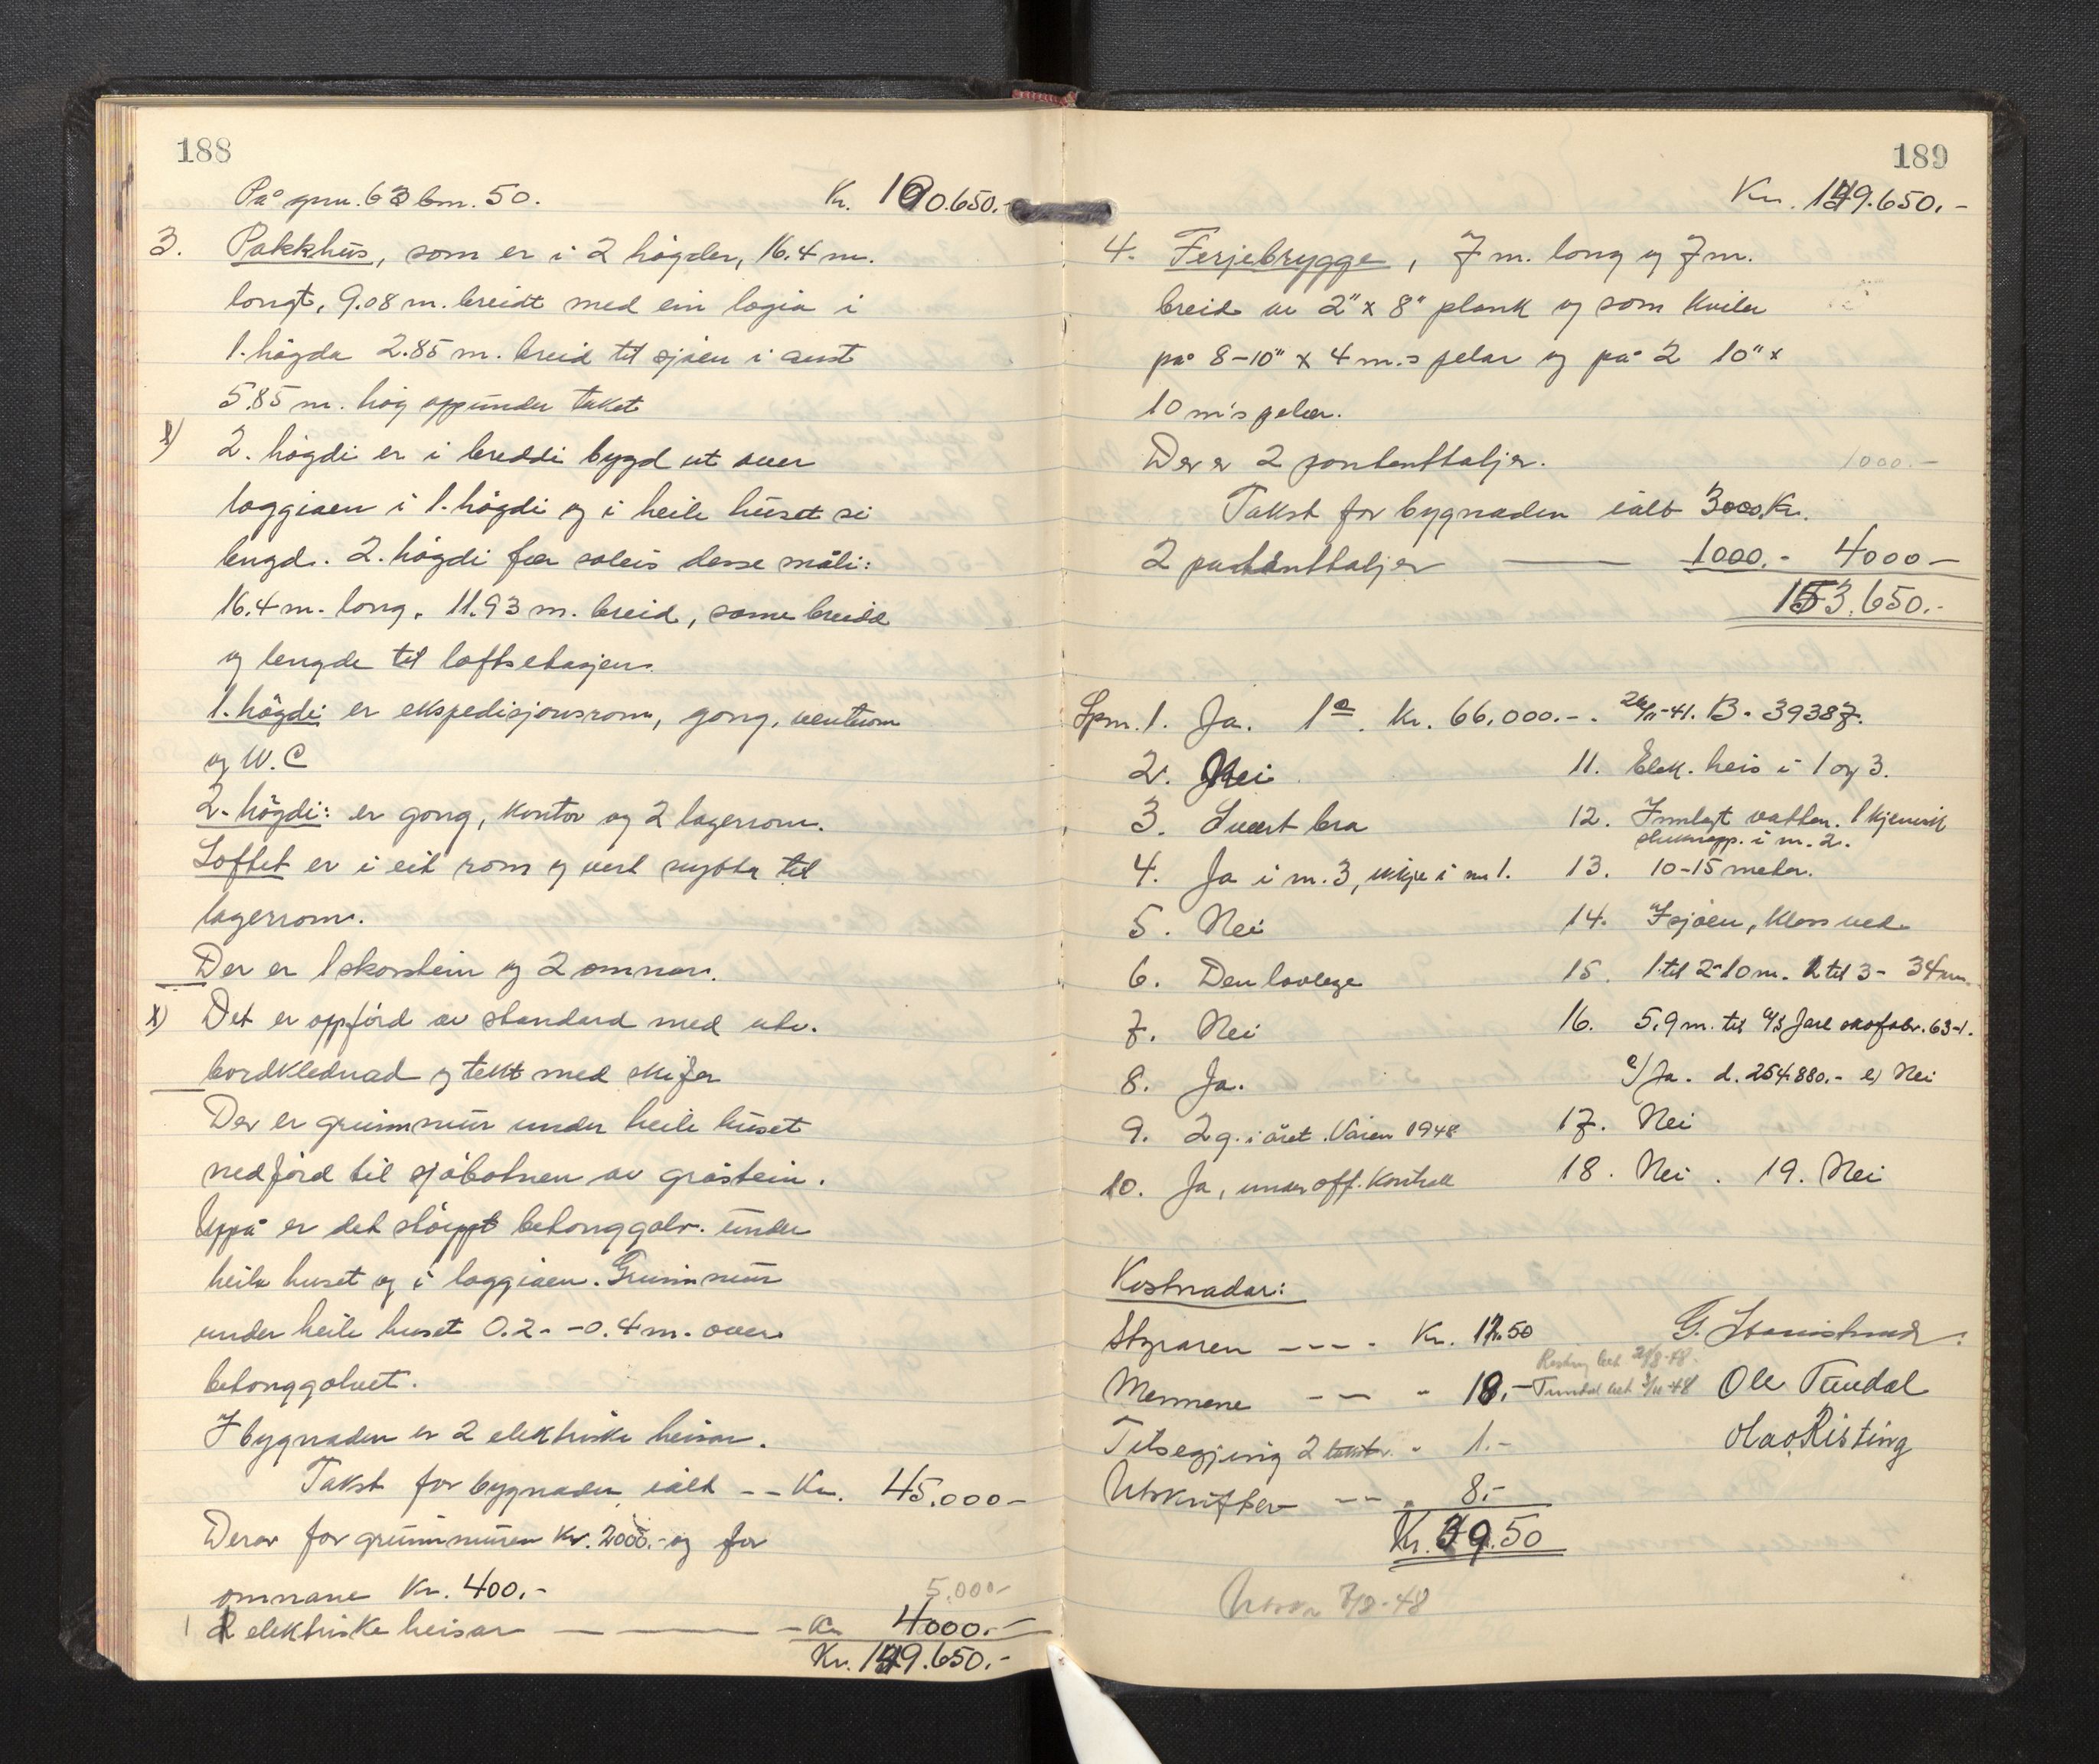 188
På gnr. 63 bnr. 50. Kr. 100.650.-
3. Pakkhus, som er i 2 högder, 16.4 m.
longt, 9.08 m. breidt med ein logia i
1. högda 2.85 m. breid til sjöen i aust
5.85 m. høg oppunder taket
x) 2. högdi er i breddi bygd ut over
loggiaen i 1. högdi og i heile huset si
lengd. 2. högdi fær soleis desse måli:
16.4 m. long, 11.93 m. breid, same breidd
og lengde til loftsetasjen.
1. högdi er ekspedisjonsrom, gong, venterom
og W.C
2. högdi: er gong, kontor og 2 lagerrom.
Loftet er i eit rom og vert nytta til
lagerrom.
Der er 1 skorstein og 2 omnar.
x) Det er oppförd av standard med utv.
bordklednad og tekt med skifer
Der er grunnmur under heile huset
nedförd til sjöbotnen av gråstein.
Uppå er det stöypt betonggolv under
heile huset og i loggiaen. Grunnmur
under heile huset 0.2 - 0.4 m. over
betonggolvet.
I bygnaden er 2 elektriske heisar.
Takst for bygnaden ialt -- Kr. 45.000-
Derav for grunnmuren Kr. 2000.- og for
omnane Kr. 400.-
5.000-
2 elektriske heisar — Kr. 4000.-
Kr. 149.650.-
189
Kr. 149.650.-
4. Ferjebrygge, 7 m. long og 7 m.
breid av 2" x 8" plank og som kviler
på 8-10" x 4 m.s pelar og på 2 10" x
10 m's pelar.
Der er 2 pontenttaljer. 1000.-
Takst for bygnaden ialt 3000 Kr.
2 patenttaljer — 1000.- 4000-
153.650.-
Spm. 1. Ja. 1ª. Kr. 66.000.-. 26/11-41. B. 39387.
2. Nei
3. Svært bra
4. Ja i nr. 3, ikkje i nr 1.
5. Nei
6. Den lovlege
7. Nei
8. Ja.
9. 2 g. i året. Våren 1948
10. Ja, under off. kontroll
11. Elek. heis i 1 og 3.
12. Innlagt vatten. 1 kjemisk
slukkapp. i nr. 2.
13. 10-15 meter.
14. I sjöen, kloss ved
15. 1 til 2-10 m. 2 til 3- 34 m.
16. 5.9 m. til A/S Jarl skofabr. 63-1.
c/ Ja. d. 254.880.- e) Nei
17. Nei
18. Nei. 19. Nei
Kostnadar:
Styraren ---- Kr. 12.50
Mennene -- " 18.-
Tilsegjing 2 takstm. " 1.-
Utskrifter -- " 8.-
Kr. 39.50
Risting bet 21/8-48.
Tundal bet 3/11-48
Ole Tundal
Olav Risting
Utskr 7/8-48